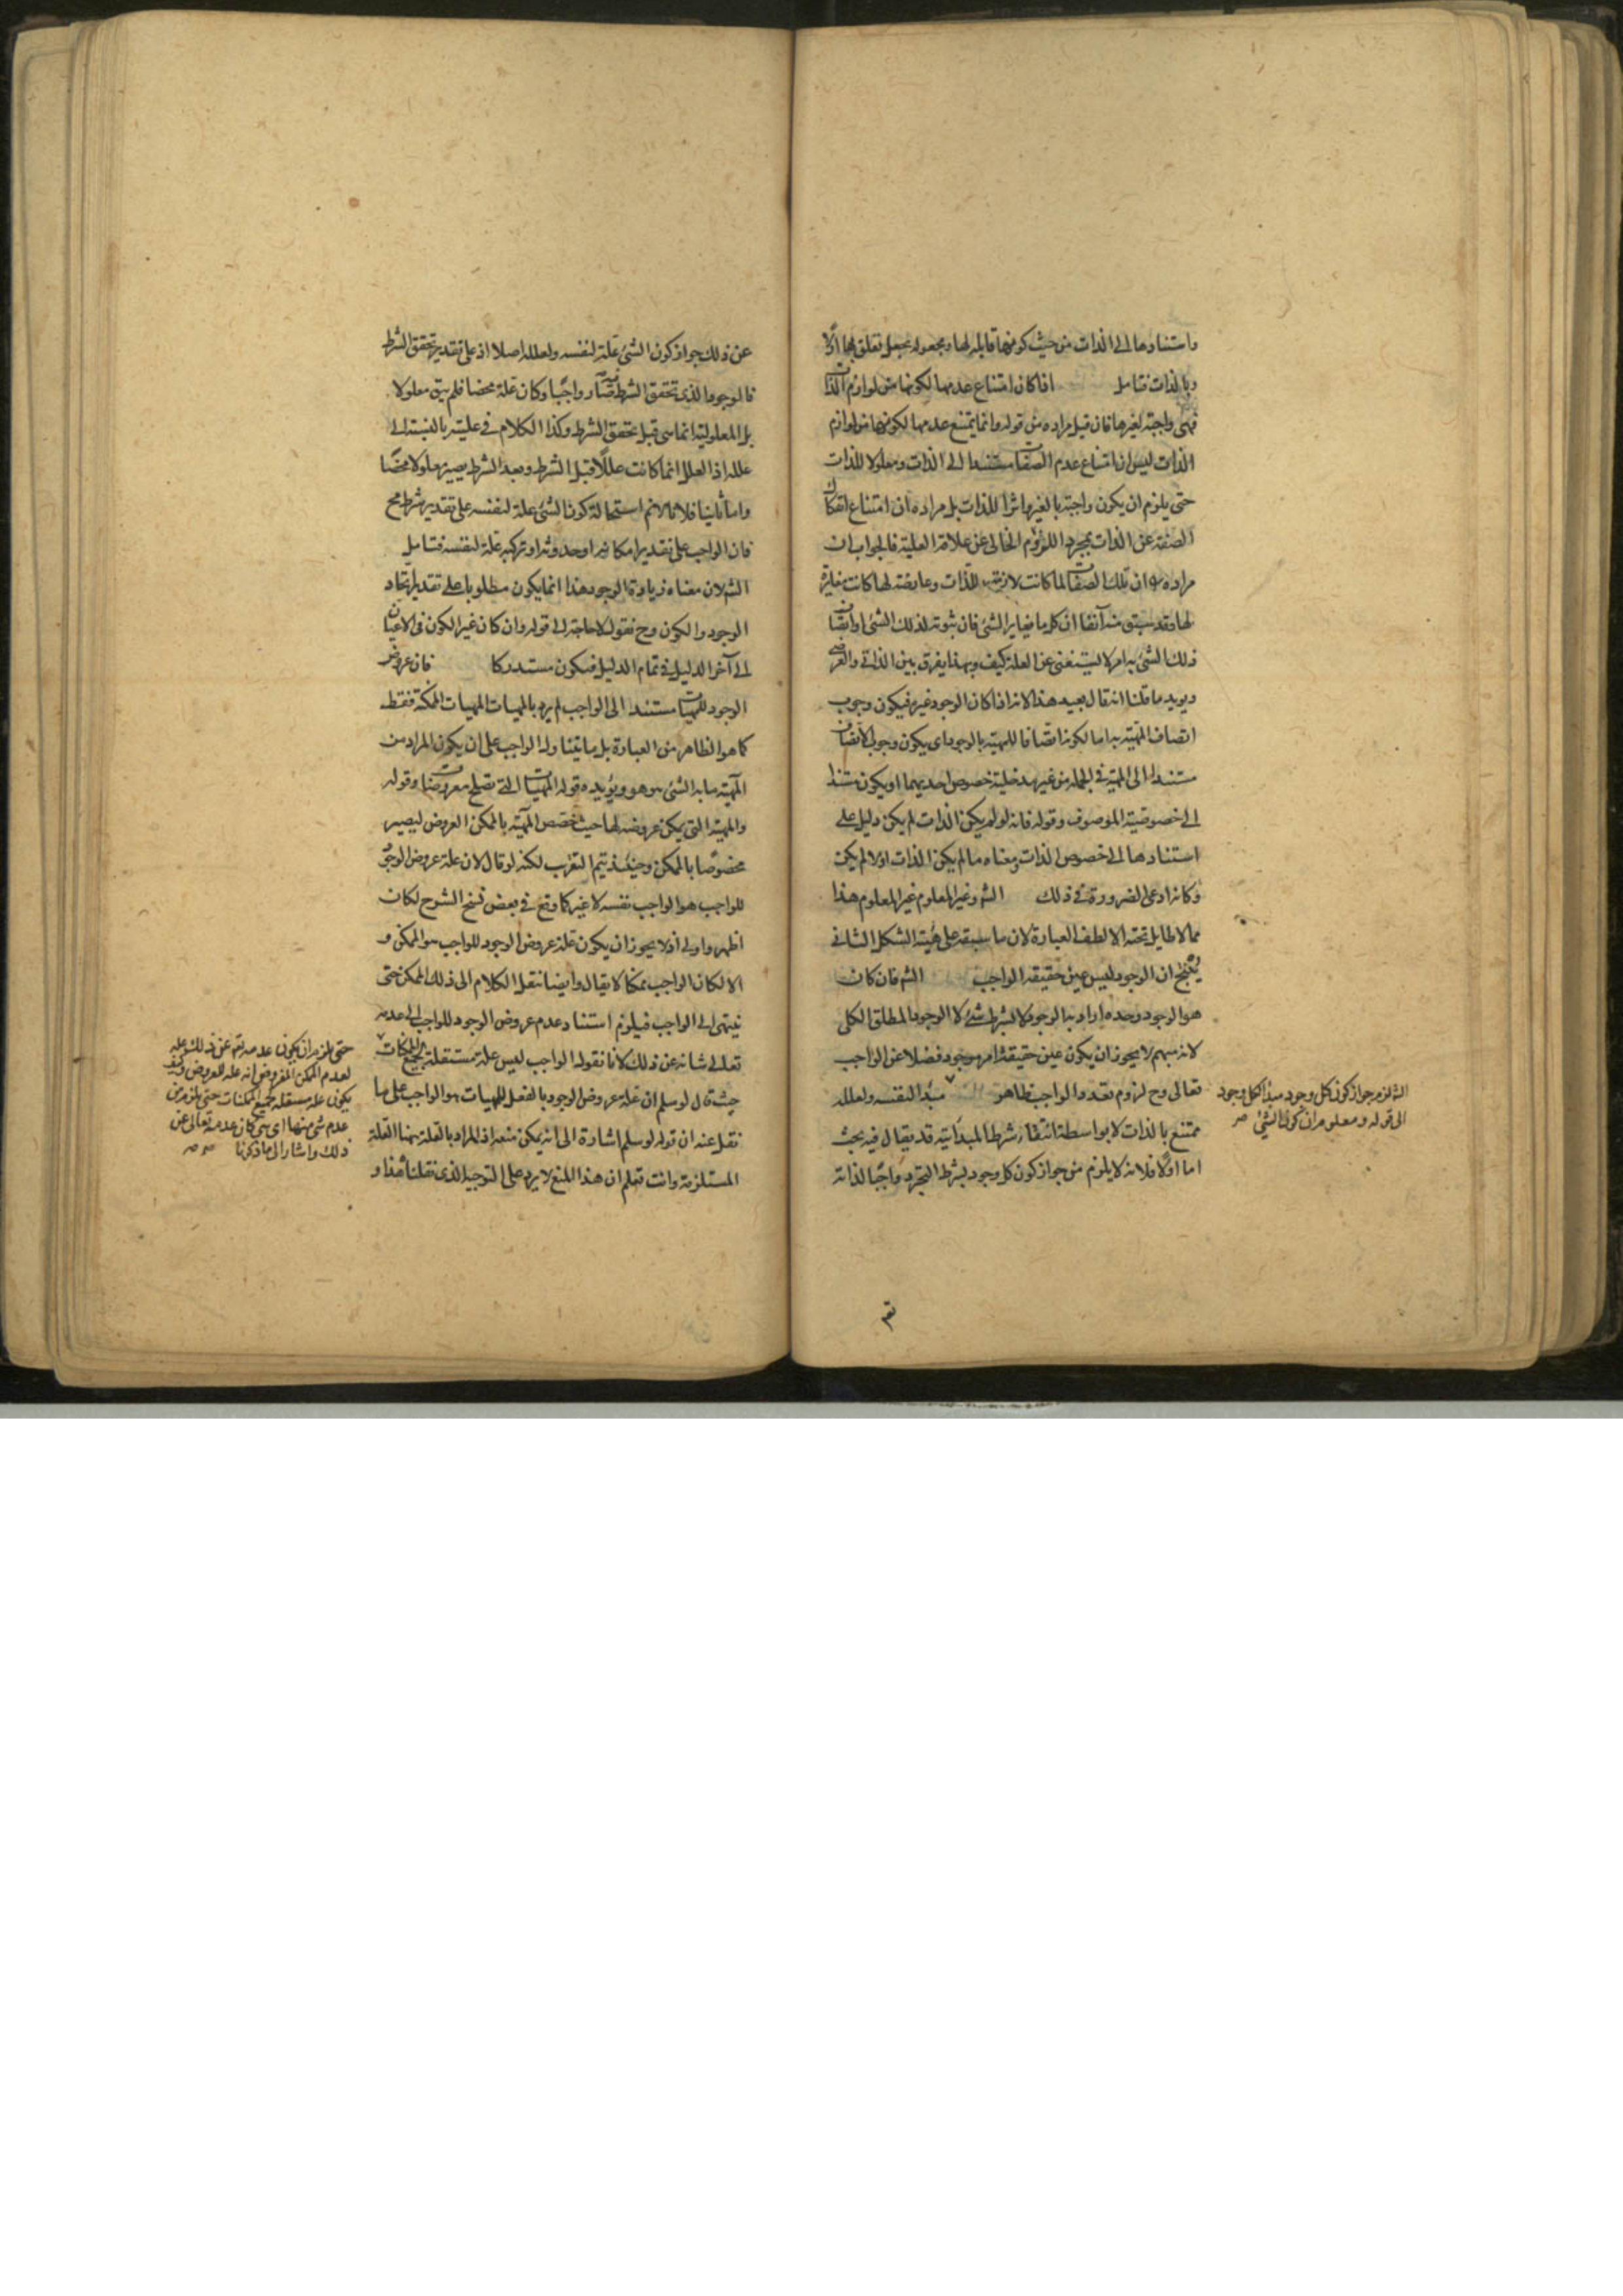 واستنادها الى الذات من حيث كونها قابلة لها ومجعوله بجعل تعلق بها اولا
وبالذات فتامل اذا كان امتناع عدمها لكونها من لوازم الذات
فهى واجبة لغيرها فان قيل مراده من قوله وانما يمتنع عدمها لكونها من لوازم
الذات ليس ان امتناع عدم الصفات مستندا الى الذات ومعلولا للذات
حتى يلزم ان يكون واجبة بالغير اثرا للذات بل مراده ان امتناع انفكاك
الصفة عن الذات بمجرد اللزوم الخالى عن علاقة العلية فالجواب ان
مراده ان تلك الصفات لما كانت لازمة للذات وعارضة لها كانت مغايرة
لها وقد سبق منه آنفا ان كل ما يغاير الشئ فان ثبوته لذلك الشئ او اتصاف
ذلك الشئ به امر لا يستغنى عن العلة كيف وبهذا يفرق بين الذاتى والعرضى
ويويد ما قلنا انه قال بعيد هذا لانه اذا كان الوجود غيره فيكون وجوب
اتصاف المهية به اما لكونه اتصافا للمهية بالوجود اى يكون وجوب الاتصاف
مستندا الى المهية فى الجملة من غير مدخلية خصوص احديهما او يكون مستندا
الى خصوصية الموصوف وقوله فانه لو لم يكن الذات لم يكن دليل على
استنادها الى خصوص الذات ومعناه ما لم يكن الذات اولا لم يكن
وكانه ادعى الضرورة فى ذلك الش وغير المعلوم غير المعلوم هذا
مما لا طايل تحته الا لطف العبارة لان ما سبقه على هيئة الشكل الثانى
ينتج ان الوجود ليس عين حقيقة الواجب الش فان كان
هو الوجود وحده اراد به الوجود لا بشرط شئ لا الوجود المطلق الكلى
لانه مبهم لا يجوز ان يكون عين حقيقة امر موجود فضلا عن الواجب
تعالى وح لزوم تعدد الواجب ظاهر مبدا لنفسه ولعلله
ممتنع بالذات لا بواسطة انتفاء شرط المبدأية قد يقال فيه بحث
اما اولا فلانه لا يلزم من جواز كون كل وجود بشرط التجرد واجبا لذاته
الش لزم جواز كون كل وجود مبدأ لكل وجود
الى قوله ومعلوم ان كون الشئ
عن ذلك جواز كون الشئ علة لنفسه ولعلله اصلا اذ على تقدير تحقق الشرط
فالوجود الذى تحقق الشرط صار واجبا وكان علة محضا فلم يبق معلولا
بل المعلولية انما هى قبل تحقق الشرط وكذا الكلام فى علية بالنسبة الى
علله اذ العلل انما كانت عللا قبل الشرط وبعد الشرط يصير معلولا محضا
واما ثانيا فلانا لا نم استحالة كون الشئ علة لنفسه على تقدير شرط مح
فان الواجب على تقدير امكانه او حدوثه او تركبه علة لنفسه فتامل
الش لان معناه زيادة الوجود هذا انما يكون مطلوبا على تقدير اتحاد
الوجود والكون وح نقول لا حاجة الى قوله وان كان غير الكون فى الاعيان
الى آخر الدليل فى تمام الدليل فيكون مستدركا فان عروض
الوجود للمهيات مستندا الى الواجب لم يرد بالمهيات المهيات الممكنة فقط
كما هو الظاهر من العبارة بل ما يتناول الواجب على ان يكون المراد من
المهية ما به الشئ هو هو ويؤيده قوله المهيات التى تصلح معروضا وقوله
والمهية التى يمكن عروضه لها حيث خصص المهية بالممكن العروض ليصير
مخصوصا بالممكن وحينئذ يتم التقريب لكنه لو قال لان علة عروض الوجود
للواجب هو الواجب نفسه لا غير كما وقع فى بعض نسخ الشرح لكان
اظهر واولى اذ لا يجوز ان يكون علة عروض الوجود للواجب هو الممكن و
الا لكان الواجب ممكنا لا يقال وايضا ننقل الكلام الى ذلك الممكن حتى
ينتهى الى الواجب فيلزم استناد عدم عروض الوجود للواجب الى عدمه
تعالى شانه عن ذلك لانا نقول الواجب ليس علة مستقلة لجميع الممكنات
حيث قال لو سلم ان علة عروض الوجود بالفعل للمهيات هو الواجب على ما
نقل عنه ان قوله لو سلم اشارة الى انه يمكن منعه اذ المراد بالعلة ههنا العلة
المستلزمة وانت تعلم ان هذا المنع لا يرد على التوجيه الذى نقلناه هذا و
حتى يلزم ان يكون عدمه تع عن ذلك علة
لعدم الممكن المفروض انه علة للعروض وكيف
يكون علة مستقلة لجميع الممكنات حتى يلزم من
عدم شئ منها اى شئ كان عدمه تعالى عن
ذلك واشار الى ما ذكرنا